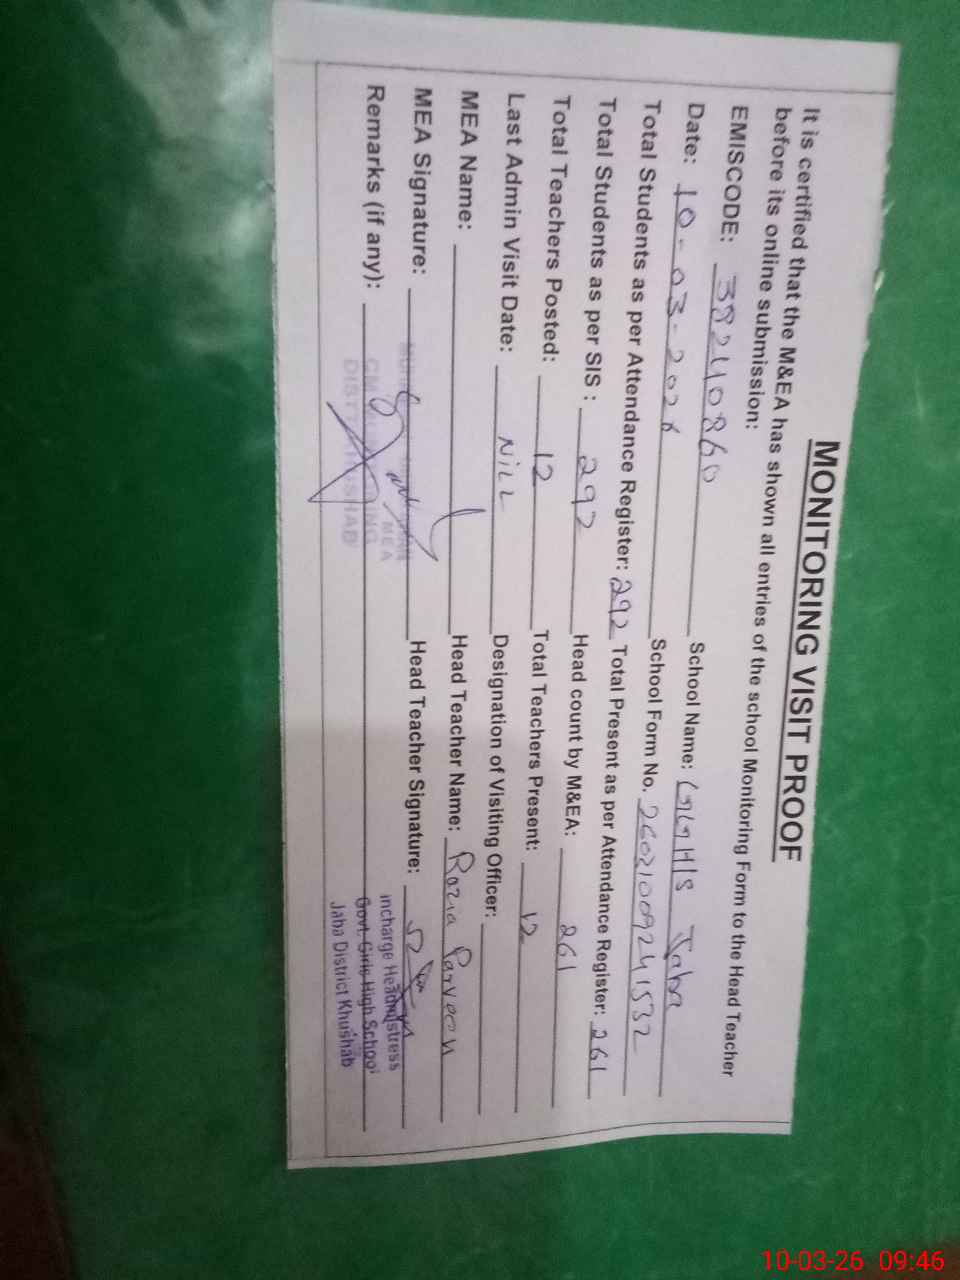 MONITORING VISIT PROOF
It is certified that the M&EA has shown all entries of the school Monitoring Form to the Head Teacher
before its online submission:
EMISCODE: 38240860 School Name: GGHS Jaba
Date: 10-03-2026 School Form No. 26021009241532
Total Students as per Attendance Register: 292 Total Present as per Attendance Register: 261
Total Students as per SIS : 292 Head count by M&EA: 261
Total Teachers Posted: 12 Total Teachers Present: 12
Last Admin Visit Date: NiLL Designation of Visiting Officer:
MEA Name: Head Teacher Name: Razia Parveen
MEA Signature: Head Teacher Signature:
Remarks (if any):
MEA
DISTT KHUSHAB
incharge Headmistress
Govt. Girls High School
Jaba District Khushab
10-03-26 09:46